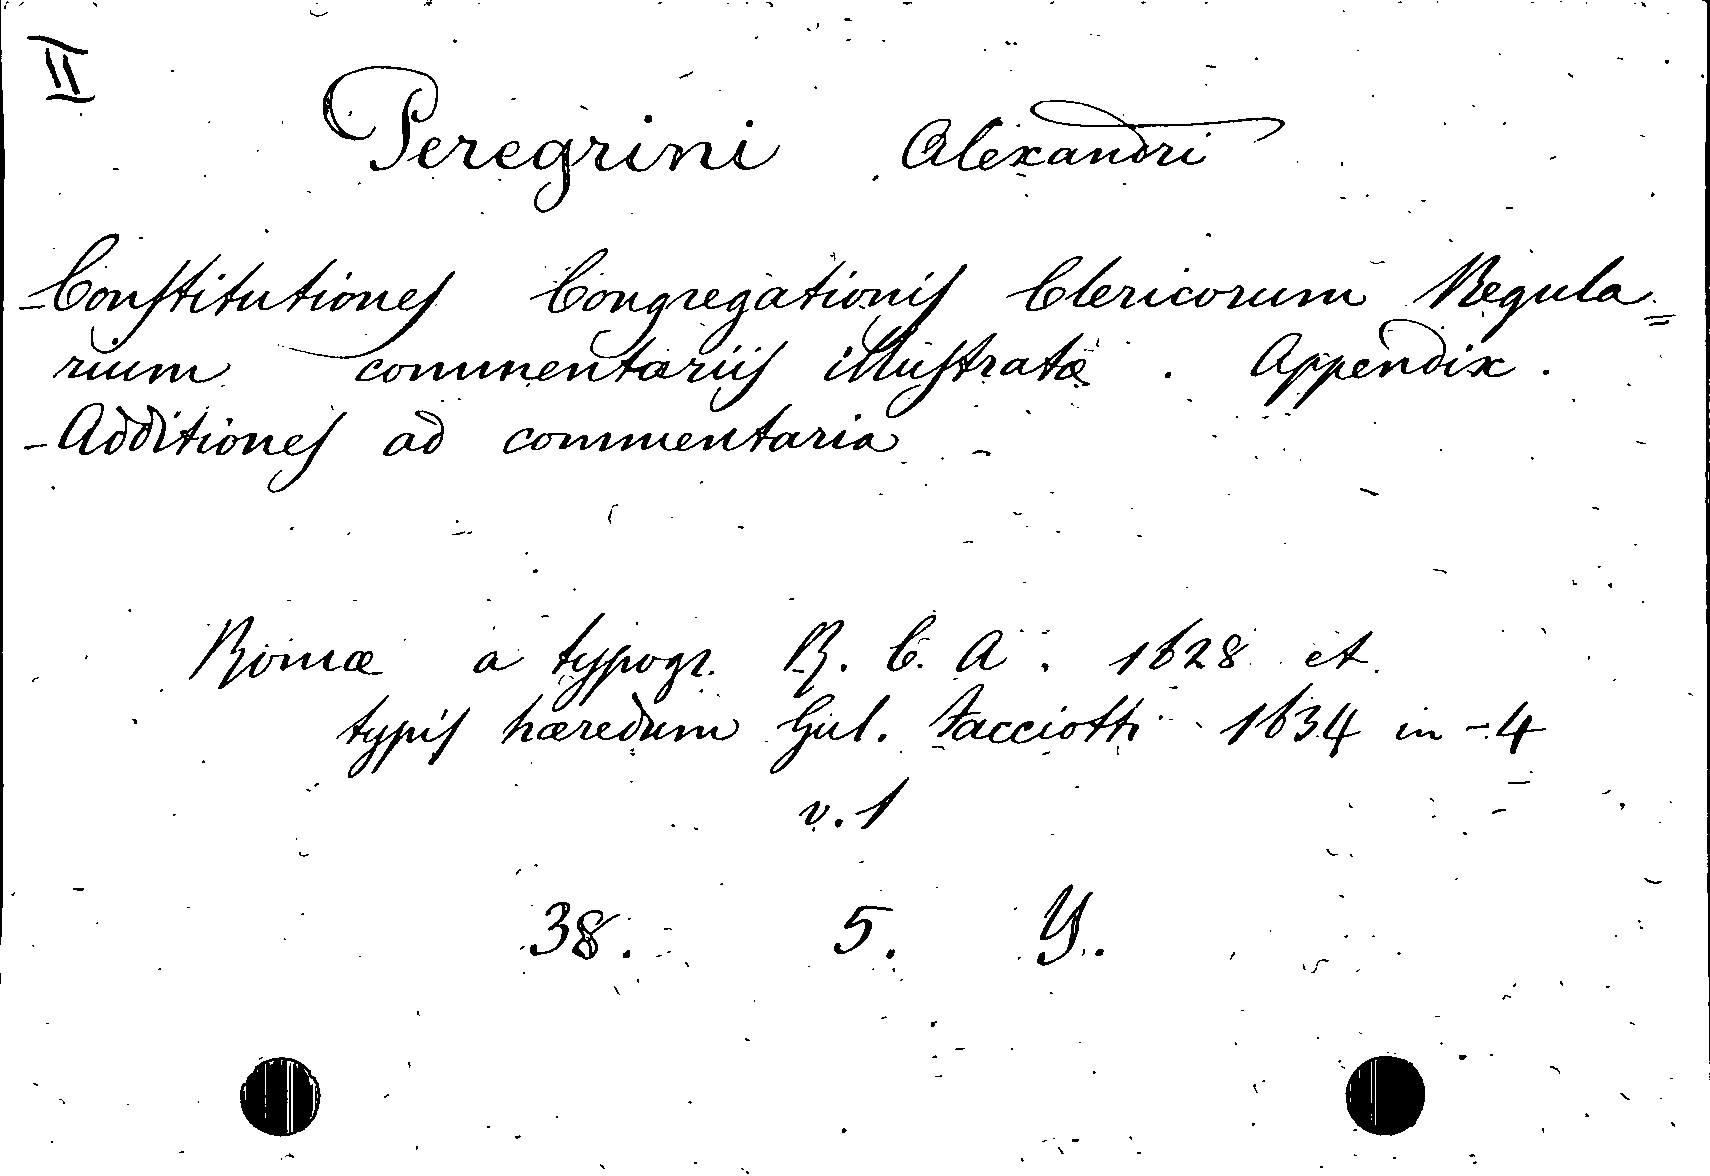 II
Peregrini Alexandri
- Constitutiones Congregationis Clericorum Regula=
rium commentariis illustratæ. Appendix.
- Additiones ad commentaria
Romæ a typogr. R. C. A. 1628 et
typis hæredum Gul. Facciotti 1634 in-4
v. 1
38. 5. Y.